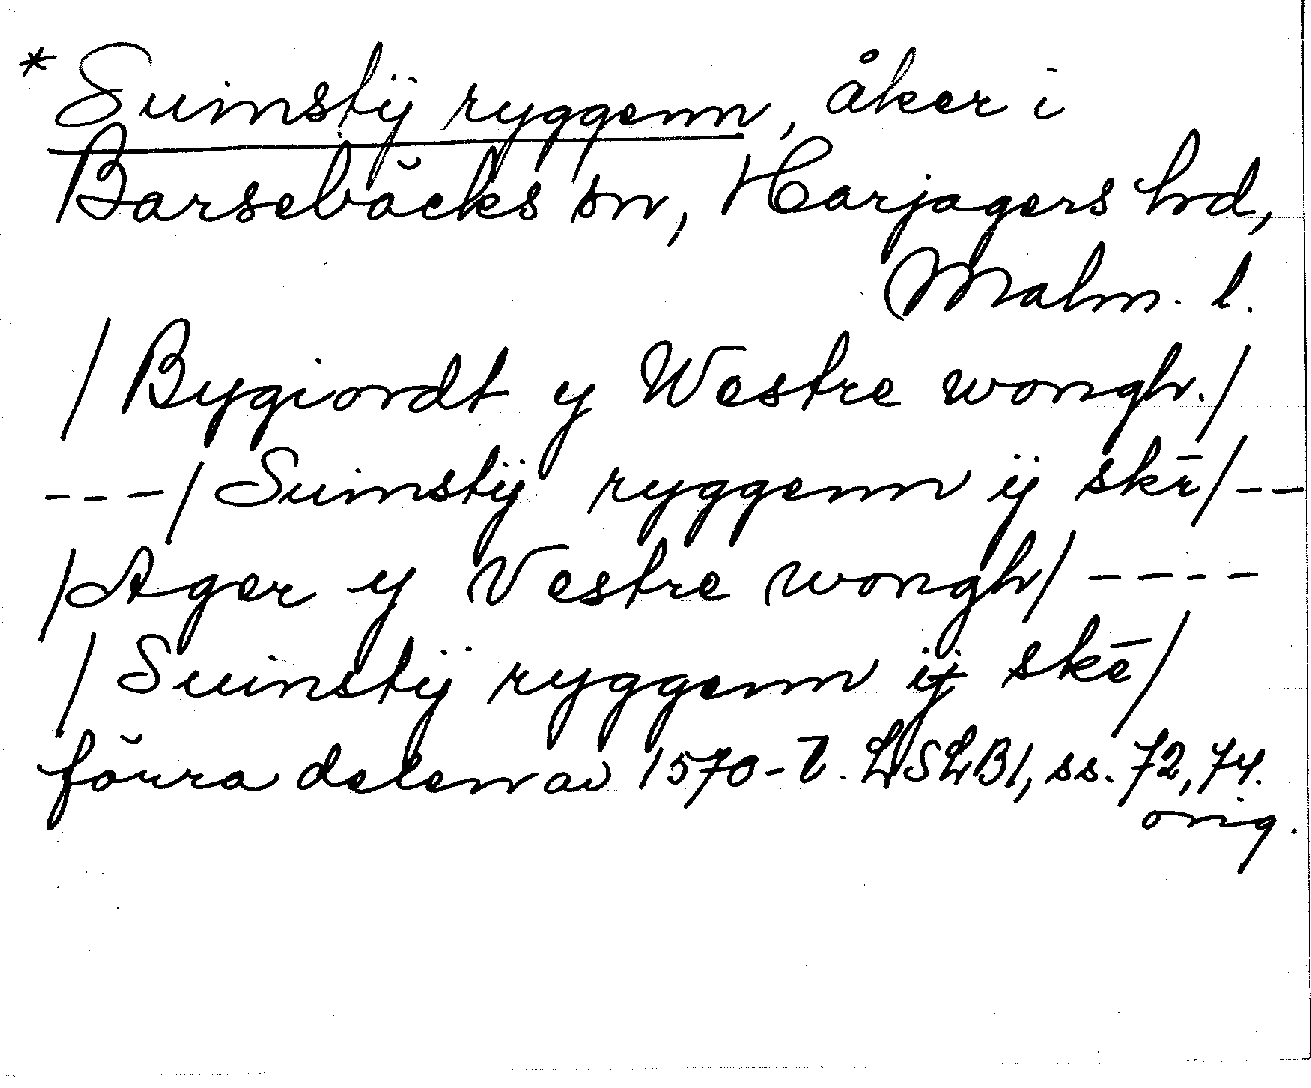 * Suinstÿ ryggenn, åker i
Barsebäcks sn, Harjagers hd,
Malm. l.
/ Bygiordt y Westre wongh. /
--- / Suinstÿ ryggenn ÿ skē / --
/ Ager y Vestre wongh / ----
/ Suinstÿ ryggenn ÿ skē /
förra delen av 1570-t. LSLB1, ss. 72, 74.
orig.